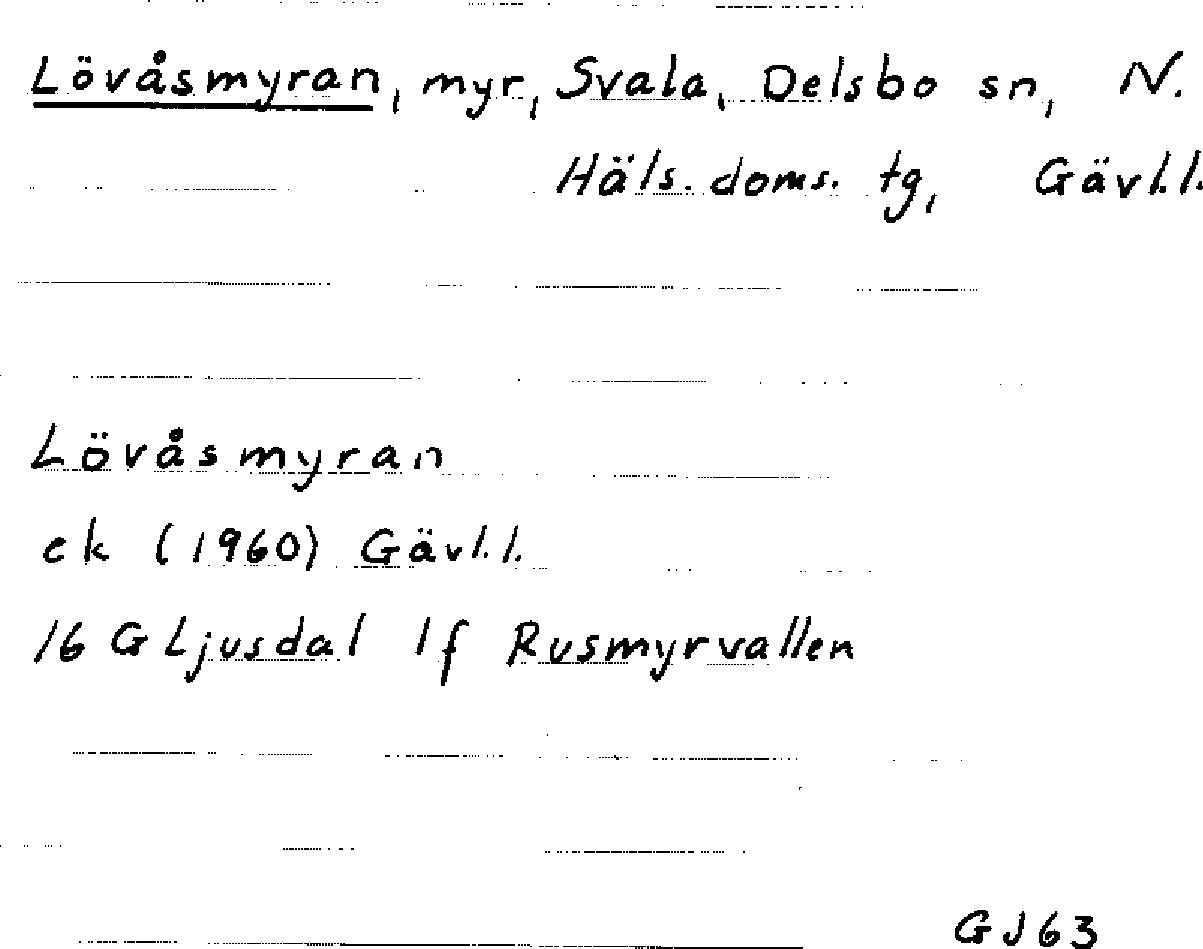 Lövåsmyran, myr, Svala, Delsbo sn, N.
Häls. doms. tg, Gävl.l.
Lövåsmyran
ek (1960) Gävl.l.
16 G Ljusdal 1f Rusmyrvallen
GJ63